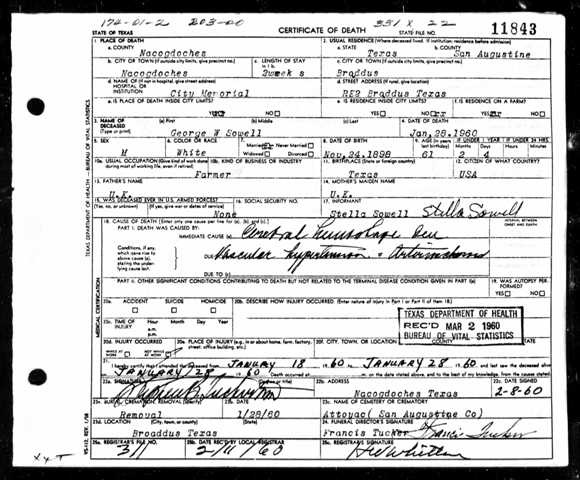 174-01-2 203-00 331 X 22
STATE OF TEXAS CERTIFICATE OF DEATH STATE FILE NO. 11843
1. PLACE OF DEATH 2. USUAL RESIDENCE (Where deceased lived. If institution: residence before admission)
a. COUNTY a. STATE b. COUNTY
Nacogdoches Texas San Augustine
b. CITY OR TOWN (If outside city limits, give precinct no.) c. LENGTH OF STAY in 1 b. c. CITY OR TOWN (If outside city limits, give precinct no.)
Nacogdoches 2week s Braddus
d. NAME OF (If not in hospital, give street address) HOSPITAL OR INSTITUTION d. STREET ADDRESS (If rural, give location)
City Memorial RE2 Braddus Texas
e. IS PLACE OF DEATH INSIDE CITY LIMITS? e. IS RESIDENCE INSIDE CITY LIMITS? f. IS RESIDENCE ON A FARM?
YES NO YES NO YES NO
3. NAME OF DECEASED (Type or print) (a) First (b) Middle (c) Last 4. DATE OF DEATH
George W Sowell Jan, 28, 1960
5. SEX 6. COLOR OR RACE 7. Married Never Married Widowed Divorced 8. DATE OF BIRTH 9. AGE (In years last birthday) IF UNDER 1 YEAR IF UNDER 24 HRS. Months Days Hours Minutes
M White Nov, 24, 1898 61 2 4
10a. USUAL OCCUPATION (Give kind of work done during most of working life, even if retired) 10b. KIND OF BUSINESS OR INDUSTRY 11. BIRTHPLACE (State or foreign country) 12. CITIZEN OF WHAT COUNTRY?
Farmer Texas USA
13. FATHER'S NAME 14. MOTHER'S MAIDEN NAME
U.K. U.K.
15. WAS DECEASED EVER IN U.S. ARMED FORCES? 16. SOCIAL SECURITY NO. 17. INFORMANT
(Yes, no, or unknown) (If yes, give war or dates of service)
None Stella Sowell Stella Sowell
18. CAUSE OF DEATH (Enter only one cause per line for (a), (b), and (c).) INTERVAL BETWEEN ONSET AND DEATH
PART I. DEATH WAS CAUSED BY:
IMMEDIATE CAUSE (a) Cerebral
Conditions, if any, which gave rise to above cause (a), stating the underlying cause last. DUE TO (b) Vascular hypertension
DUE TO (c)
PART II. OTHER SIGNIFICANT CONDITIONS CONTRIBUTING TO DEATH BUT NOT RELATED TO THE TERMINAL DISEASE CONDITION GIVEN IN PART I(a) 19. WAS AUTOPSY PERFORMED?
YES NO
20a. ACCIDENT SUICIDE HOMICIDE 20b. DESCRIBE HOW INJURY OCCURRED. (Enter nature of injury in Part I or Part II of item 18.)
20c. TIME OF INJURY Hour Month Day Year
a.m.
p.m.
TEXAS DEPARTMENT OF HEALTH
REC'D MAR 2 1960
BUREAU OF VITAL STATISTICS
20d. INJURY OCCURRED 20e. PLACE OF INJURY (e.g., in or about home, farm, factory, street, office building, etc.) 20f. CITY, TOWN, OR LOCATION COUNTY
21. I hereby certify that I attended the deceased from JANUARY 18 1960 to JANUARY 28 1960 and last saw the deceased alive on
JANUARY 28 1960 Death occurred at m. on the date stated above; and to the best of my knowledge, from the causes stated
22a. SIGNATURE 22b. ADDRESS 22c. DATE SIGNED
Nacogdoches Texas 2-8-60
23a. BURIAL, CREMATION, REMOVAL (Specify) 23b. DATE 23c. NAME OF CEMETERY OR CREMATORY
Removal 1/28/60 Attoyac( San Augustine Co)
23d. LOCATION 24. FUNERAL DIRECTOR'S SIGNATURE
Broaddus Texas Francis Tucker Francis Tucker
25a. REGISTRAR'S FILE NO. 25b. DATE REC'D BY LOCAL REGISTRAR 25c. REGISTRAR'S SIGNATURE
311 2/11/60
TEXAS DEPARTMENT OF HEALTH—BUREAU OF VITAL STATISTICS
MEDICAL CERTIFICATION
VS-112 REV. 1/58